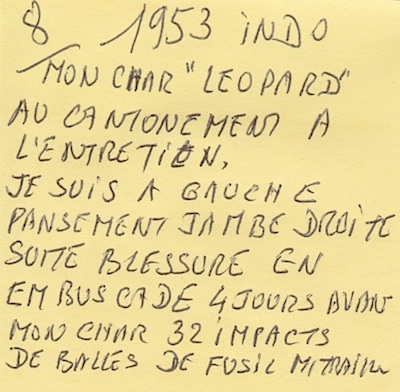 8 1953 INDO
MON CHAR "LEOPARD"
AU CANTONEMENT A
L'ENTRETIEN,
JE SUIS A GAUCHE
PANSEMENT JAMBE DROITE
SUITE BLESSURE EN
EMBUSCADE 4 JOURS AVANT
MON CHAR 32 IMPACTS
DE BALLES DE FUSIL MITRAILL